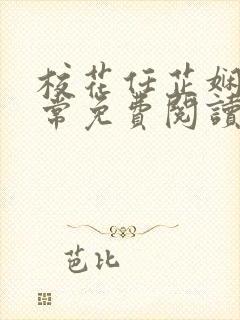 校花任芷娴
常免费閱讀
芭比